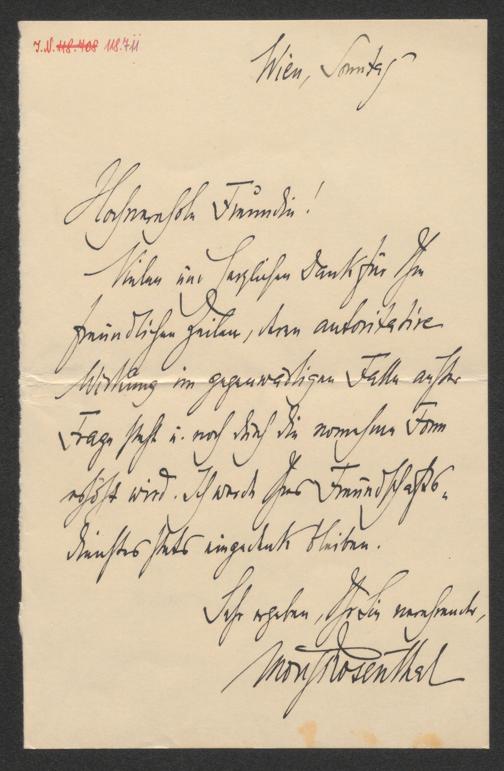 I.N. 118.708 118.711
Wien, Sonntag
Hochverehrte Freundin!
Vielen und herzlichen Dank für Ihre
freundlichen Zeilen, deren autoritative
Wirkung im gegenwärtigen Falle außer
Frage steht u. noch durch die vornehme Form
erhöht wird. Ich werde Ihres Freundschafts-
dienstes stets eingedenk bleiben.
Sehr ergeben, Ihr Sie verehrender,
Moriz Rosenthal